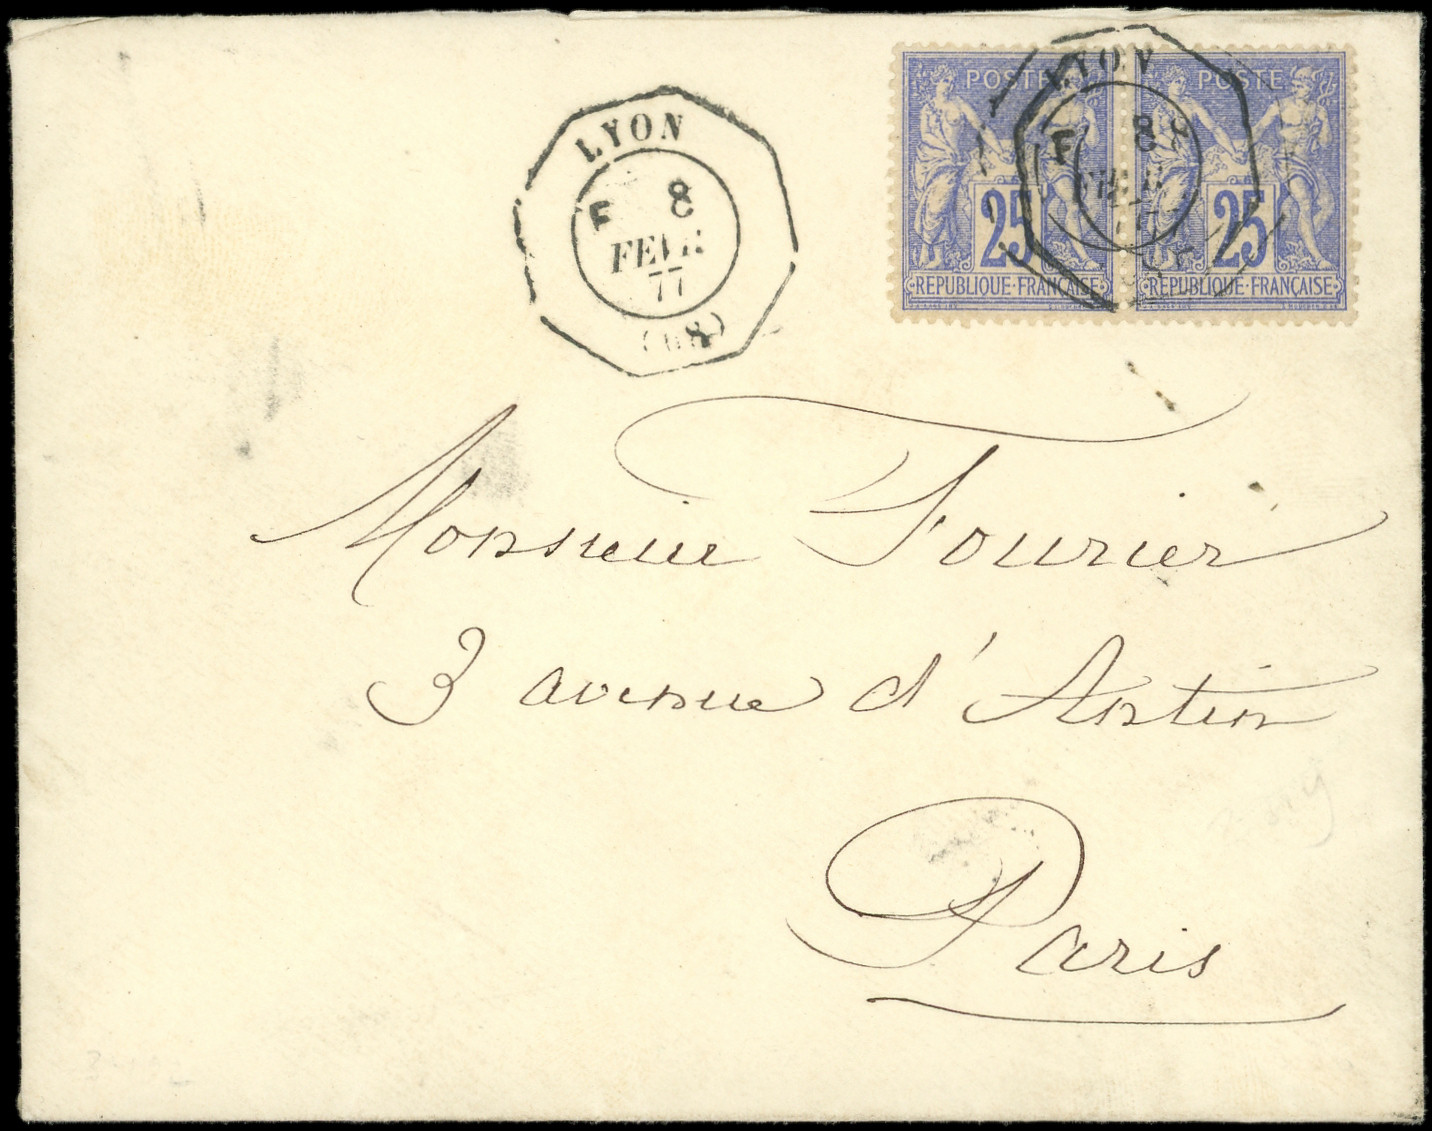 LYON
F 8
FEVR
77
(68)
POSTE
25
REPUBLIQUE·FRANÇAISE
POSTE
25
REPUBLIQUE·FRANÇAISE
LYON
F 8
FEVR
77
Monsieur Fourier
3 avenue d'Antin
Paris